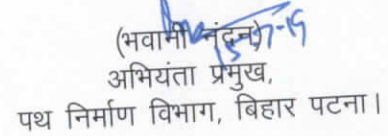 (भवानी नंदन)
15-7-19
अभियंता प्रमुख,
पथ निर्माण विभाग, बिहार पटना।